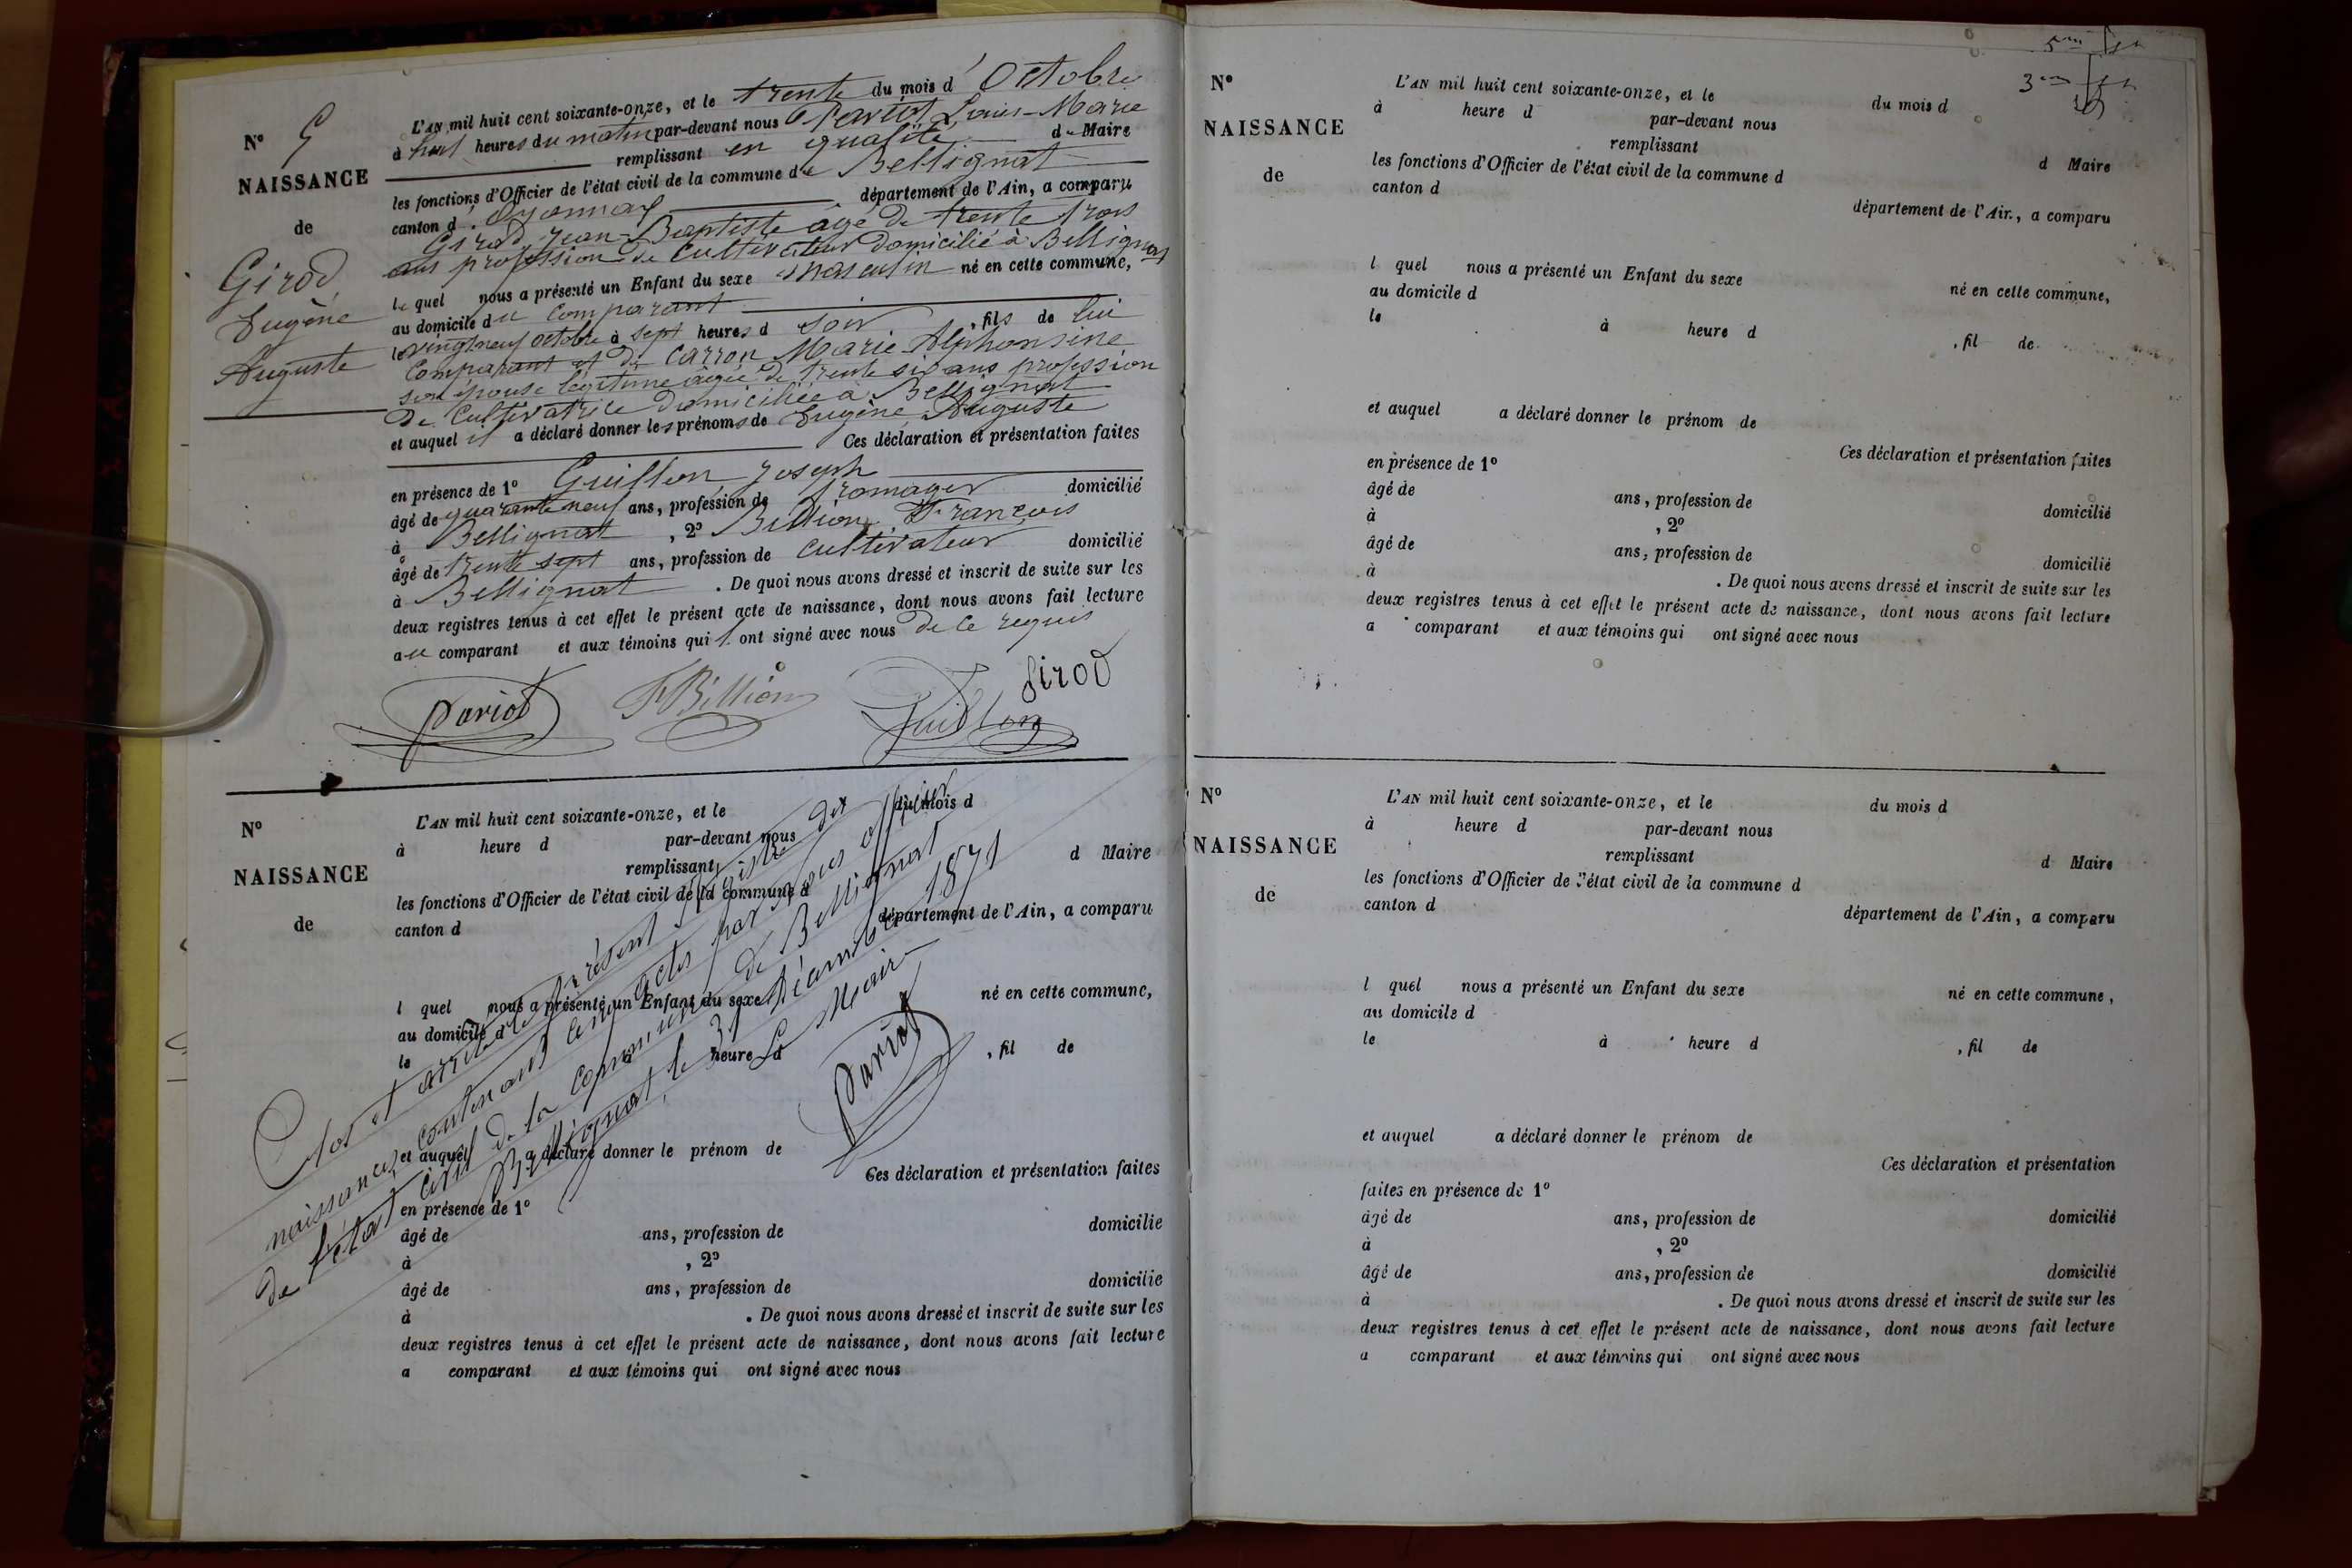 N° 5
NAISSANCE
de
Girod
Eugène
Auguste
L'AN mil huit cent soixante-onze, et le trente du mois d'Octobre
à huit heures du matin par-devant nous Pariot Louis-Marie
remplissant en qualité de Maire
les fonctions d'Officier de l'état civil de la commune de Bellignat
canton d'Oyonnax département de l'Ain, a comparu
Girod Jean-Baptiste âgé de trente trois
ans profession de Cultivateur domicilié à Bellignat
le quel nous a présenté un Enfant du sexe masculin né en cette commune,
au domicile du comparant
le vingt neuf octobre à sept heures d soir, fils de lui
Comparant et de Carron Marie Alphonsine
son épouse légitime âgée de trente six ans profession
de Cultivatrice domiciliée à Bellignat
et auquel il a déclaré donner les prénoms de Eugène Auguste
Ces déclaration et présentation faites
en présence de 1° Guillon Joseph
âgé de quarante neuf ans, profession de fromager domicilié
à Bellignat, 2° Billion François
âgé de trente sept ans, profession de cultivateur domicilié
à Bellignat. De quoi nous avons dressé et inscrit de suite sur les
deux registres tenus à cet effet le présent acte de naissance, dont nous avons fait lecture
au comparant et aux témoins qui ont signé avec nous de ce requis
Girod
Pariot FBillion Guillon
N°
NAISSANCE
de
L'AN mil huit cent soixante-onze, et le du mois d
à heure d par-devant nous
remplissant d Maire
les fonctions d'Officier de l'état civil de la commune d
canton d département de l'Ain, a comparu
l quel nous a présenté un Enfant du sexe né en cette commune,
au domicile d
le à heure d , fil de
et auquel a déclaré donner le prénom de
Ces déclaration et présentation faites
en présence de 1°
âgé de ans, profession de domicilié
à , 2°
âgé de ans, profession de domicilié
à . De quoi nous avons dressé et inscrit de suite sur les
deux registres tenus à cet effet le présent acte de naissance, dont nous avons fait lecture
a comparant et aux témoins qui ont signé avec nous
Clos et arrêté le présent registre des
naissances contenant cinq actes par nous officier
de l'état civil de la commune de Bellignat
Bellignat, le 31 Décembre 1871
Le Maire
Pariot
5
3
N°
NAISSANCE
de
L'AN mil huit cent soixante-onze, et le du mois d
à heure d par-devant nous
remplissant d Maire
les fonctions d'Officier de l'état civil de la commune d
canton d département de l'Ain, a comparu
l quel nous a présenté un Enfant du sexe né en cette commune,
au domicile d
le à heure d , fil de
et auquel a déclaré donner le prénom de
Ces déclaration et présentation faites
en présence de 1°
âgé de ans, profession de domicilié
à , 2°
âgé de ans, profession de domicilié
à . De quoi nous avons dressé et inscrit de suite sur les
deux registres tenus à cet effet le présent acte de naissance, dont nous avons fait lecture
a comparant et aux témoins qui ont signé avec nous
N°
NAISSANCE
de
L'AN mil huit cent soixante-onze, et le du mois d
à heure d par-devant nous
remplissant d Maire
les fonctions d'Officier de l'état civil de la commune d
canton d département de l'Ain, a comparu
l quel nous a présenté un Enfant du sexe né en cette commune,
au domicile d
le à heure d , fil de
et auquel a déclaré donner le prénom de
Ces déclaration et présentation
faites en présence de 1°
âgé de ans, profession de domicilié
à , 2°
âgé de ans, profession de domicilié
à . De quoi nous avons dressé et inscrit de suite sur les
deux registres tenus à cet effet le présent acte de naissance, dont nous avons fait lecture
a comparant et aux témoins qui ont signé avec nous